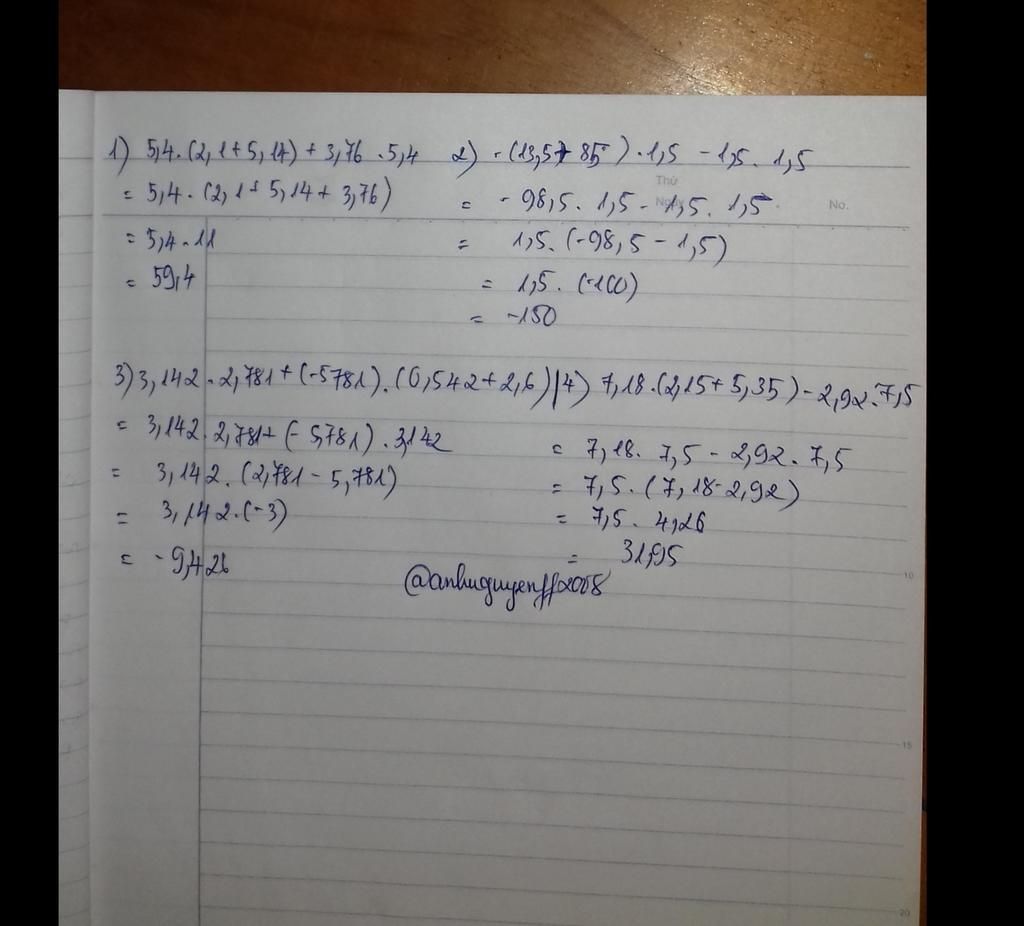 1) 5,4.(2,1+5,14)+3,76.5,4
= 5,4.(2,1+5,14+3,76)
= 5,4.11
= 59,4
2) -(13,5+85).1,5-1,5.1,5
= -98,5.1,5-1,5.1,5
= 1,5.(-98,5-1,5)
= 1,5.(-100)
= -150
Thứ
No.
3) 3,142.2,781+(-5781).(0,542+2,6)
= 3,142.2,781+(-5,781).3,142
= 3,142.(2,781-5,781)
= 3,142.(-3)
= -9,426
4) 7,18.(2,15+5,35)-2,92.7,5
= 7,18.7,5-2,92.7,5
= 7,5.(7,18-2,92)
= 7,5.4,26
= 31,95
10
15
20